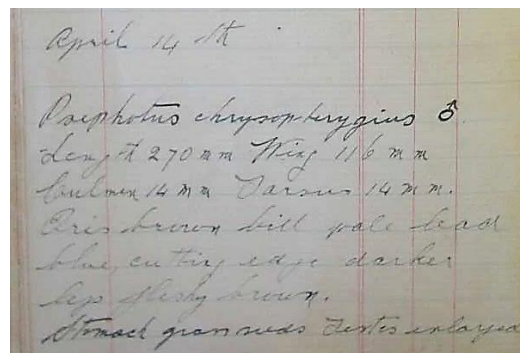 April 14 th
Psephotus chrysopterygius ♂
Length 270 mm Wing 116 mm
Culmen 14 mm Tarsus 14 mm.
Iris brown bill pale lead
blue, cutting edge darker
legs fleshy brown.
Stomach grass seeds Testes enlarged